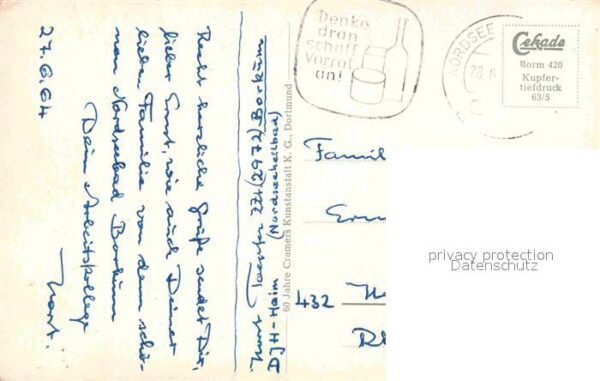 27.6.64
Recht herzliche Grüße sendet Dir,
lieber Ernst, wie auch Deiner
lieben Familie von dem schö-
nen Nordseebad Borkum
Dein Arbeitskollege
Horst.
Horst (2972) Borkum
DJH-Heim (Nordseeheilbad)
60 Jahre Cramers Kunstanstalt K. G., Dortmund
Denke
dran
schaff
Vorrat
an!
NORDSEE
Cekade
Borm 420
Kupfer-
tiefdruck
63/5
Famil
432
privacy protection
Datenschutz